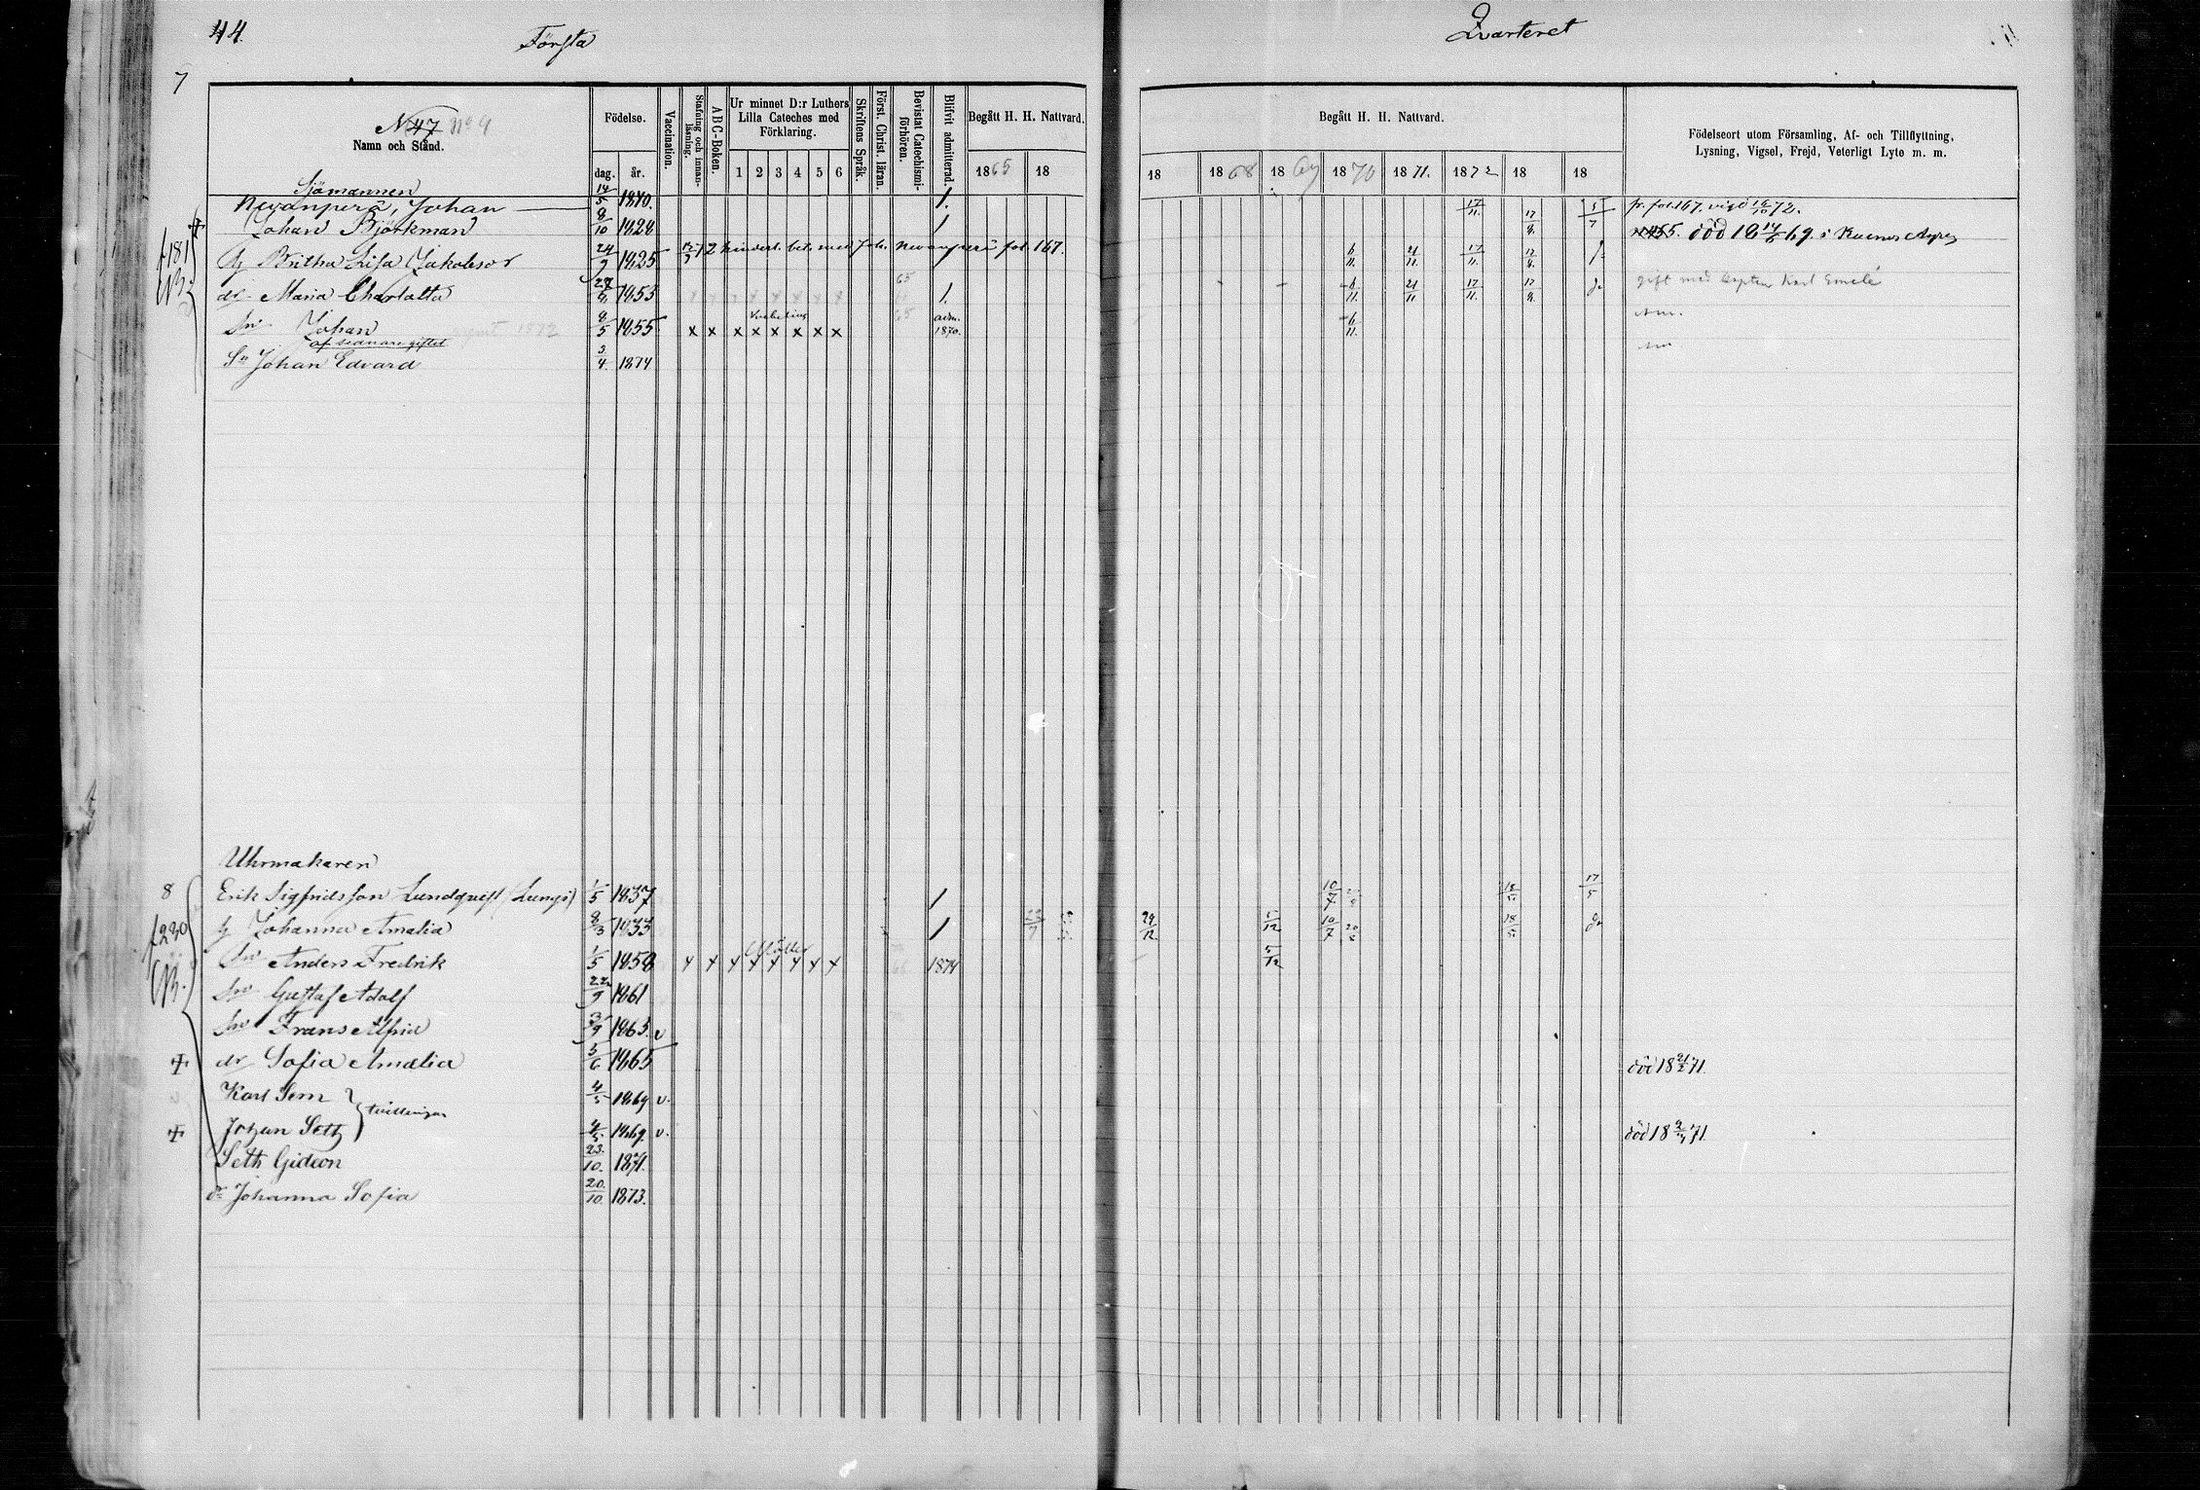 44.
Första
Qvarteret
7
N:o 47 No 9
Namn och Stånd.
Födelse.
dag. år.
Vaccination.
Stafning och innanläsning.
ABC-Boken.
Ur minnet D:r Luthers Lilla Cateches med Förklaring.
1 2 3 4 5 6
Skriftens Språk.
Först. Christ. läran.
Bevistat Catechismiförhören.
Blifvit admitterad.
Begått H. H. Nattvard.
1865 18
Begått H. H. Nattvard.
18 1868 1869 1870 1871. 1872 18 18
Födelseort utom Församling, Af- och Tillflyttning,
Lysning, Vigsel, Frejd, Veterligt Lyte m. m.
Sjömannen
Nevanperä, Johan 14/5 1840. 1. 17/11. 17/8. 5/7 fr. fol. 167. vigd 16/10 72.
Johan Björkman 8/10 1828 1 död 18 14/6 69. i Buenos Ayres
f 181 Hu Britha Lisa Jakobsdr 24/9 1825 72 hindersl. bet. med Joh. Nevanperä fol. 167. 6/11. 21/11. 17/11. 17/8.
dr Maria Charlotta 27/9 1853 65 1. 6/11. 21/11 17/11. 17/8. gift med Kapten Karl Emelé
Sn Johan 8/5 1855 x x x x x x x x 65 adm. 1870. 6/11.
af sednare giftet
Sn Johan Edvard 3/4. 1874
Uhrmakaren
8 Erik Sigfridsson Lundqvist (Lungi) 1/5 1837 1 10/7 18/5. 17/5
f 230 Hu Johanna Amalia 8/3 1833 1 23/9 29/12. 5/12 10/7 18/5.
Sn Anders Fredrik 1/5 1858 x x x x x x x x 1874 5/12
Sn Gustaf Adolf 22/9 1861
Sn Frans Alfrid 3/9 1863. v
dr Sofia Amalia 3/6 1865 död 18 21/2 71.
Karl Sem 4/5 1869 v.
tvillingar
Johan Seth 4/5. 1869. v. död 18 2/4 71.
Seth Gideon 23./10. 1871.
dr Johanna Sofia 20./10. 1873.